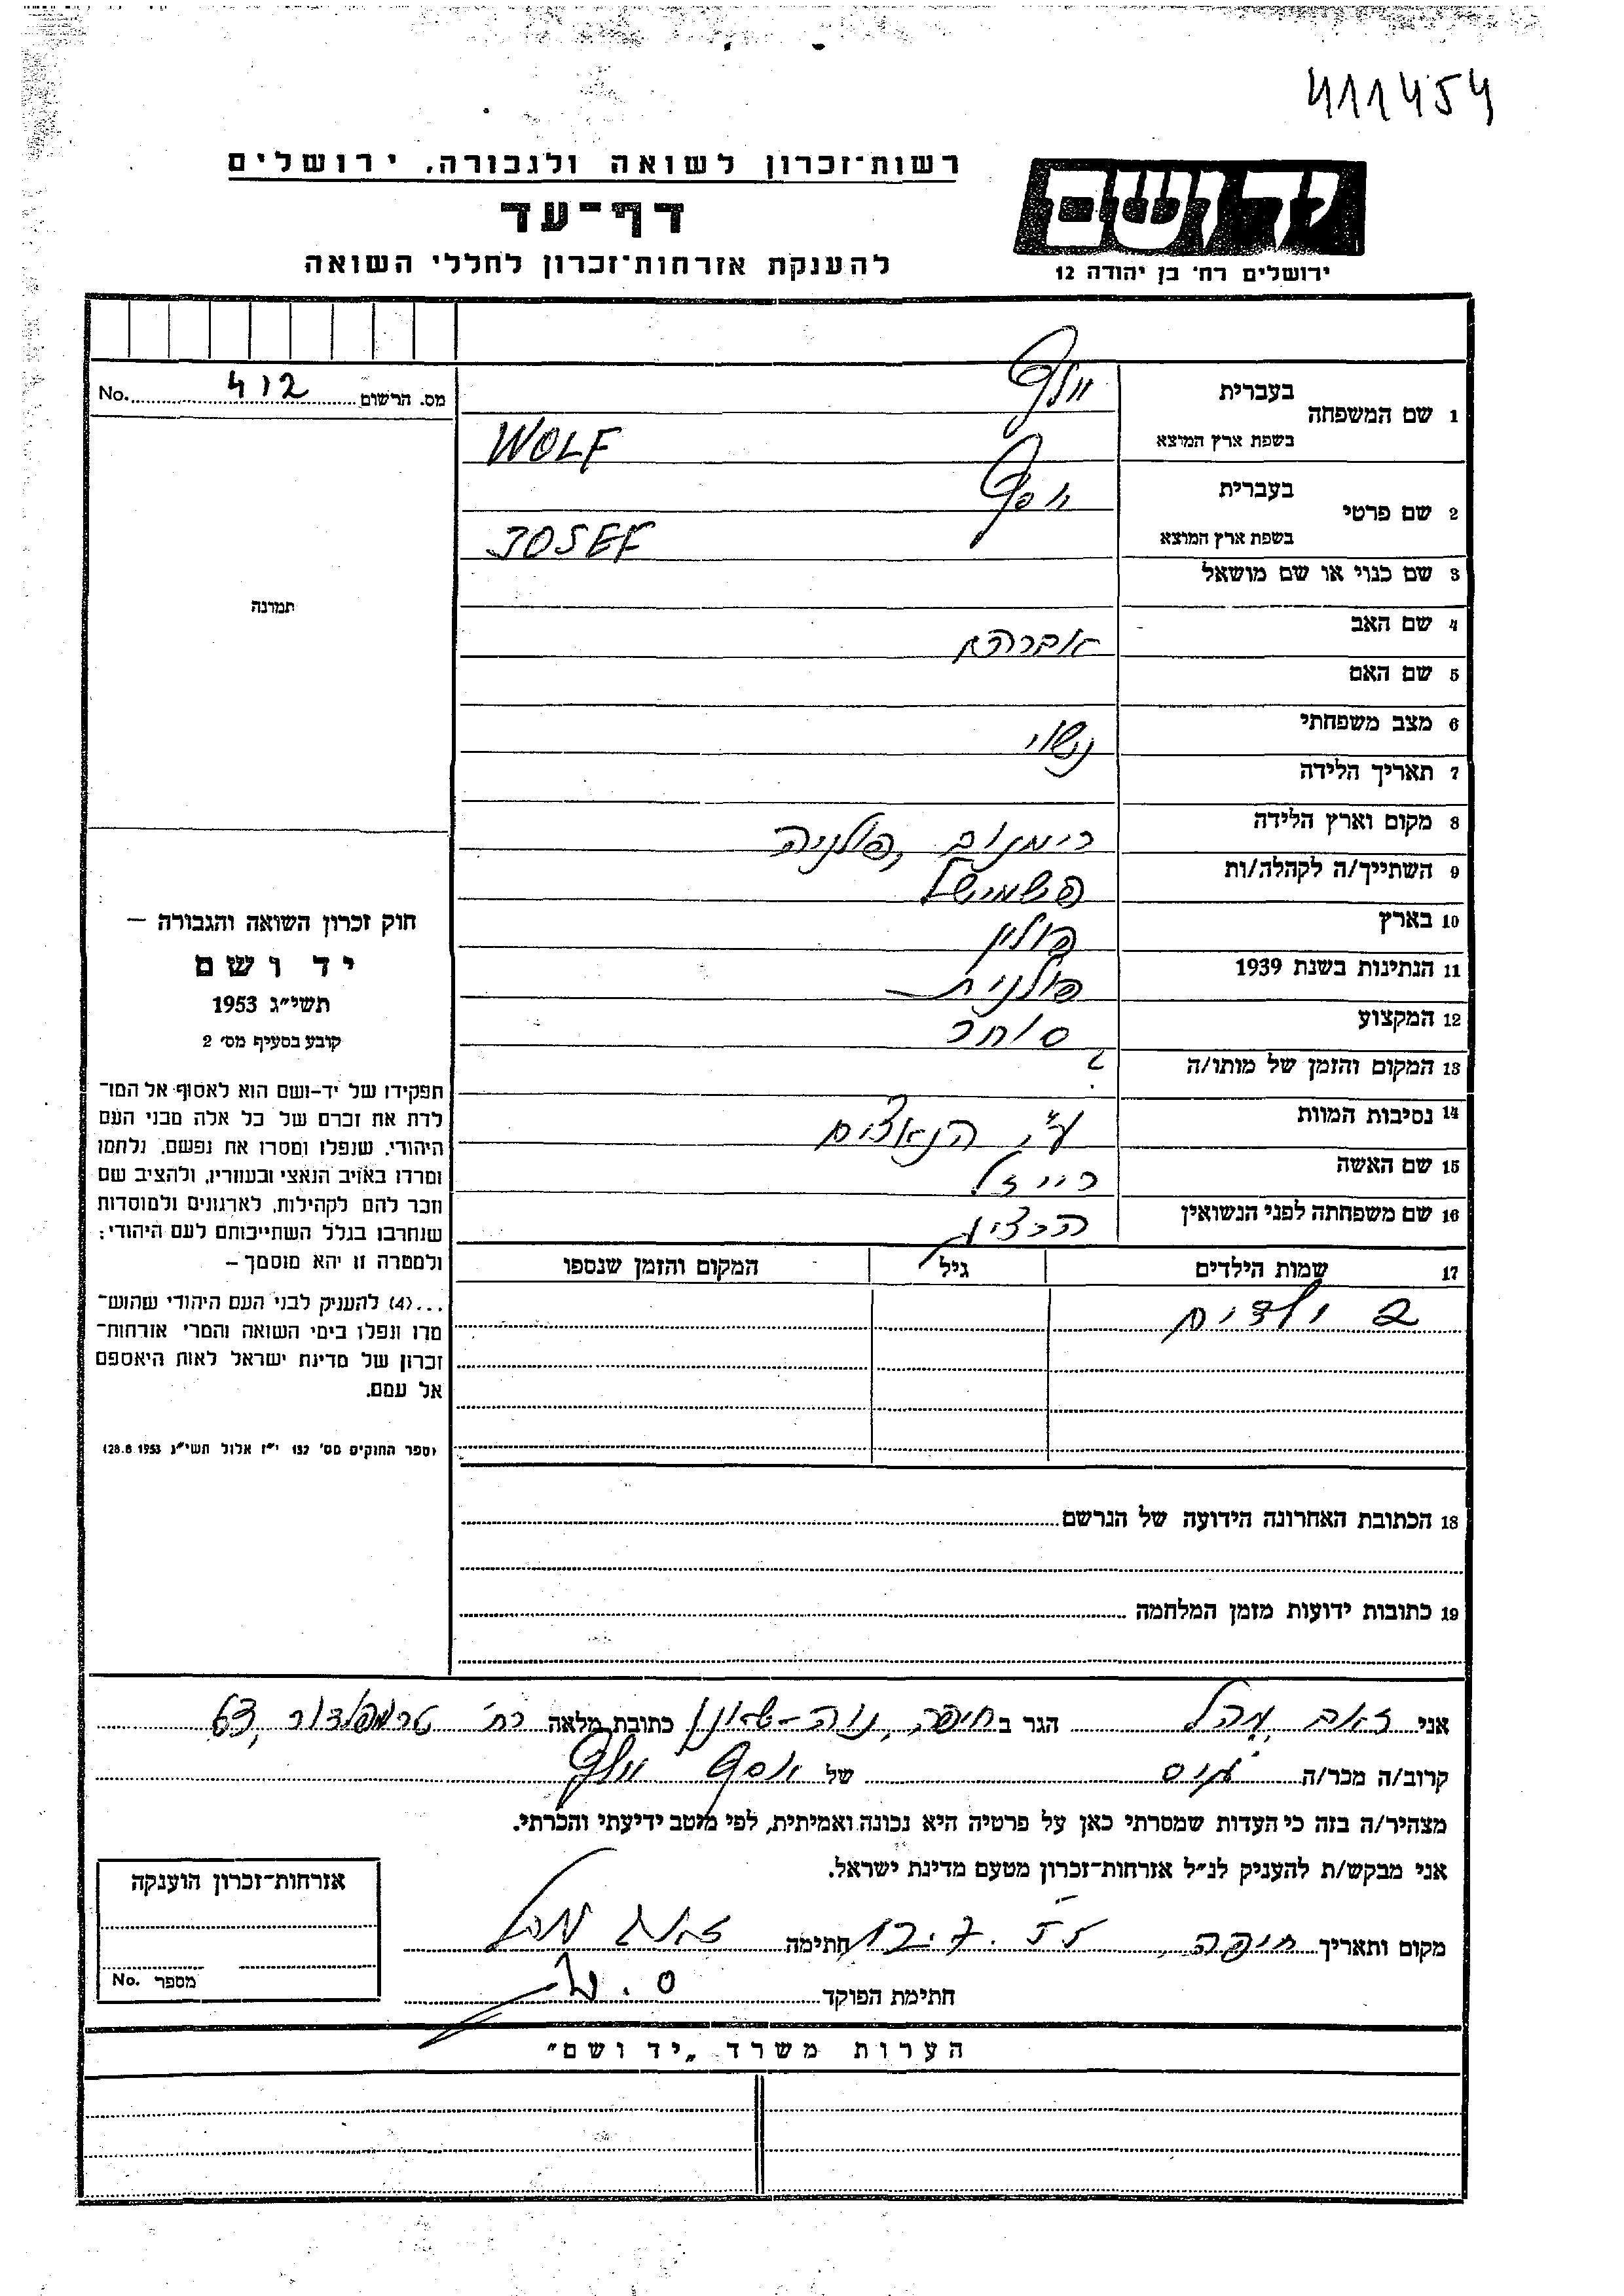 411454
רשות־זכרון לשואה ולגבורה, ירושלים
דף־עד
להענקת אזרחות־זכרון לחללי השואה
יד ושם
ירושלים רח' בן יהודה 12
מס. הרשום 412 No.
1 שם המשפחה
בעברית
וולף
בשפת ארץ המוצא
WOLF
2 שם פרטי
בעברית
יוסף
בשפת ארץ המוצא
JOSEF
3 שם כנוי או שם מושאל
4 שם האב אברהם
5 שם האם
6 מצב משפחתי נשוי
7 תאריך הלידה
8 מקום וארץ הלידה רימנוב, פולניה
9 השתייך/ה לקהלה/ות פשמישל
10 בארץ פולין
11 הנתינות בשנת 1939 פולנית
12 המקצוע סוחר
13 המקום והזמן של מותו/ה ?
14 נסיבות המוות ע"י הנאצים
15 שם האשה רייזל
16 שם משפחתה לפני הנשואין
17 שמות הילדים גיל המקום והזמן שנספו
2 ילדים
18 הכתובת האחרונה הידועה של הנרשם
19 כתובות ידועות מזמן המלחמה
תמונה
חוק זכרון השואה והגבורה –
יד ושם
תשי״ג 1953
קובע בסעיף מס' 2
תפקידו של יד-ושם הוא לאסוף אל המו־
לדת את זכרם של כל אלה מבני העם
היהודי, שנפלו ומסרו את נפשם, נלחמו
ומרדו באויב הנאצי ובעוזריו, ולהציב שם
וזכר להם לקהילות, לארגונים ולמוסדות
שנחרבו בגלל השתייכותם לעם היהודי;
ולמטרה זו יהא מוסמך –
...(4) להעניק לבני העם היהודי שהוש־
מדו ונפלו בימי השואה והמרי אזרחות־
זכרון של מדינת ישראל לאות היאספם
אל עמם.
(ספר החוקים מס' 132 י״ז אלול תשי״ג 28.8.1953)
אני זאב הגר ב חיפה, נוה-שאנן כתובת מלאה רח' טרמפלדור 63,
קרוב/ה מכר/ה גיס של יוסף וולף
מצהיר/ה בזה כי העדות שמסרתי כאן על פרטיה היא נכונה ואמיתית, לפי מיטב ידיעתי והכרתי.
אני מבקש/ת להעניק לנ״ל אזרחות־זכרון מטעם מדינת ישראל.
מקום ותאריך חיפה, 12.7.55 חתימה זאב
חתימת הפוקד
אזרחות־זכרון הוענקה
מספר No.
הערות משרד „יד ושם״